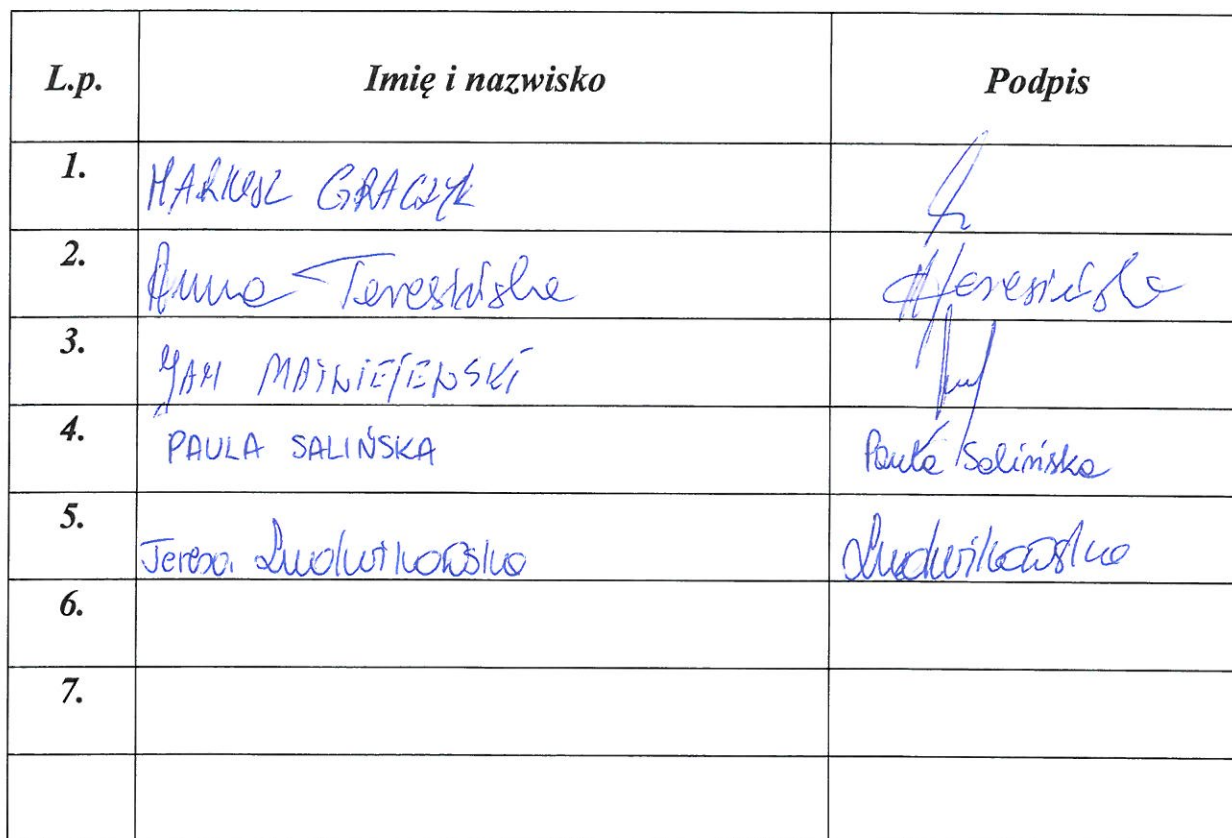 L.p. Imię i nazwisko Podpis
1. MARIUSZ GRACZYK
2. Anna Teresińska ATeresińska
3. JAN
4. PAULA SALIŃSKA Paula Salińska
5. Teresa Ludwikowska Ludwikowska
6.
7.